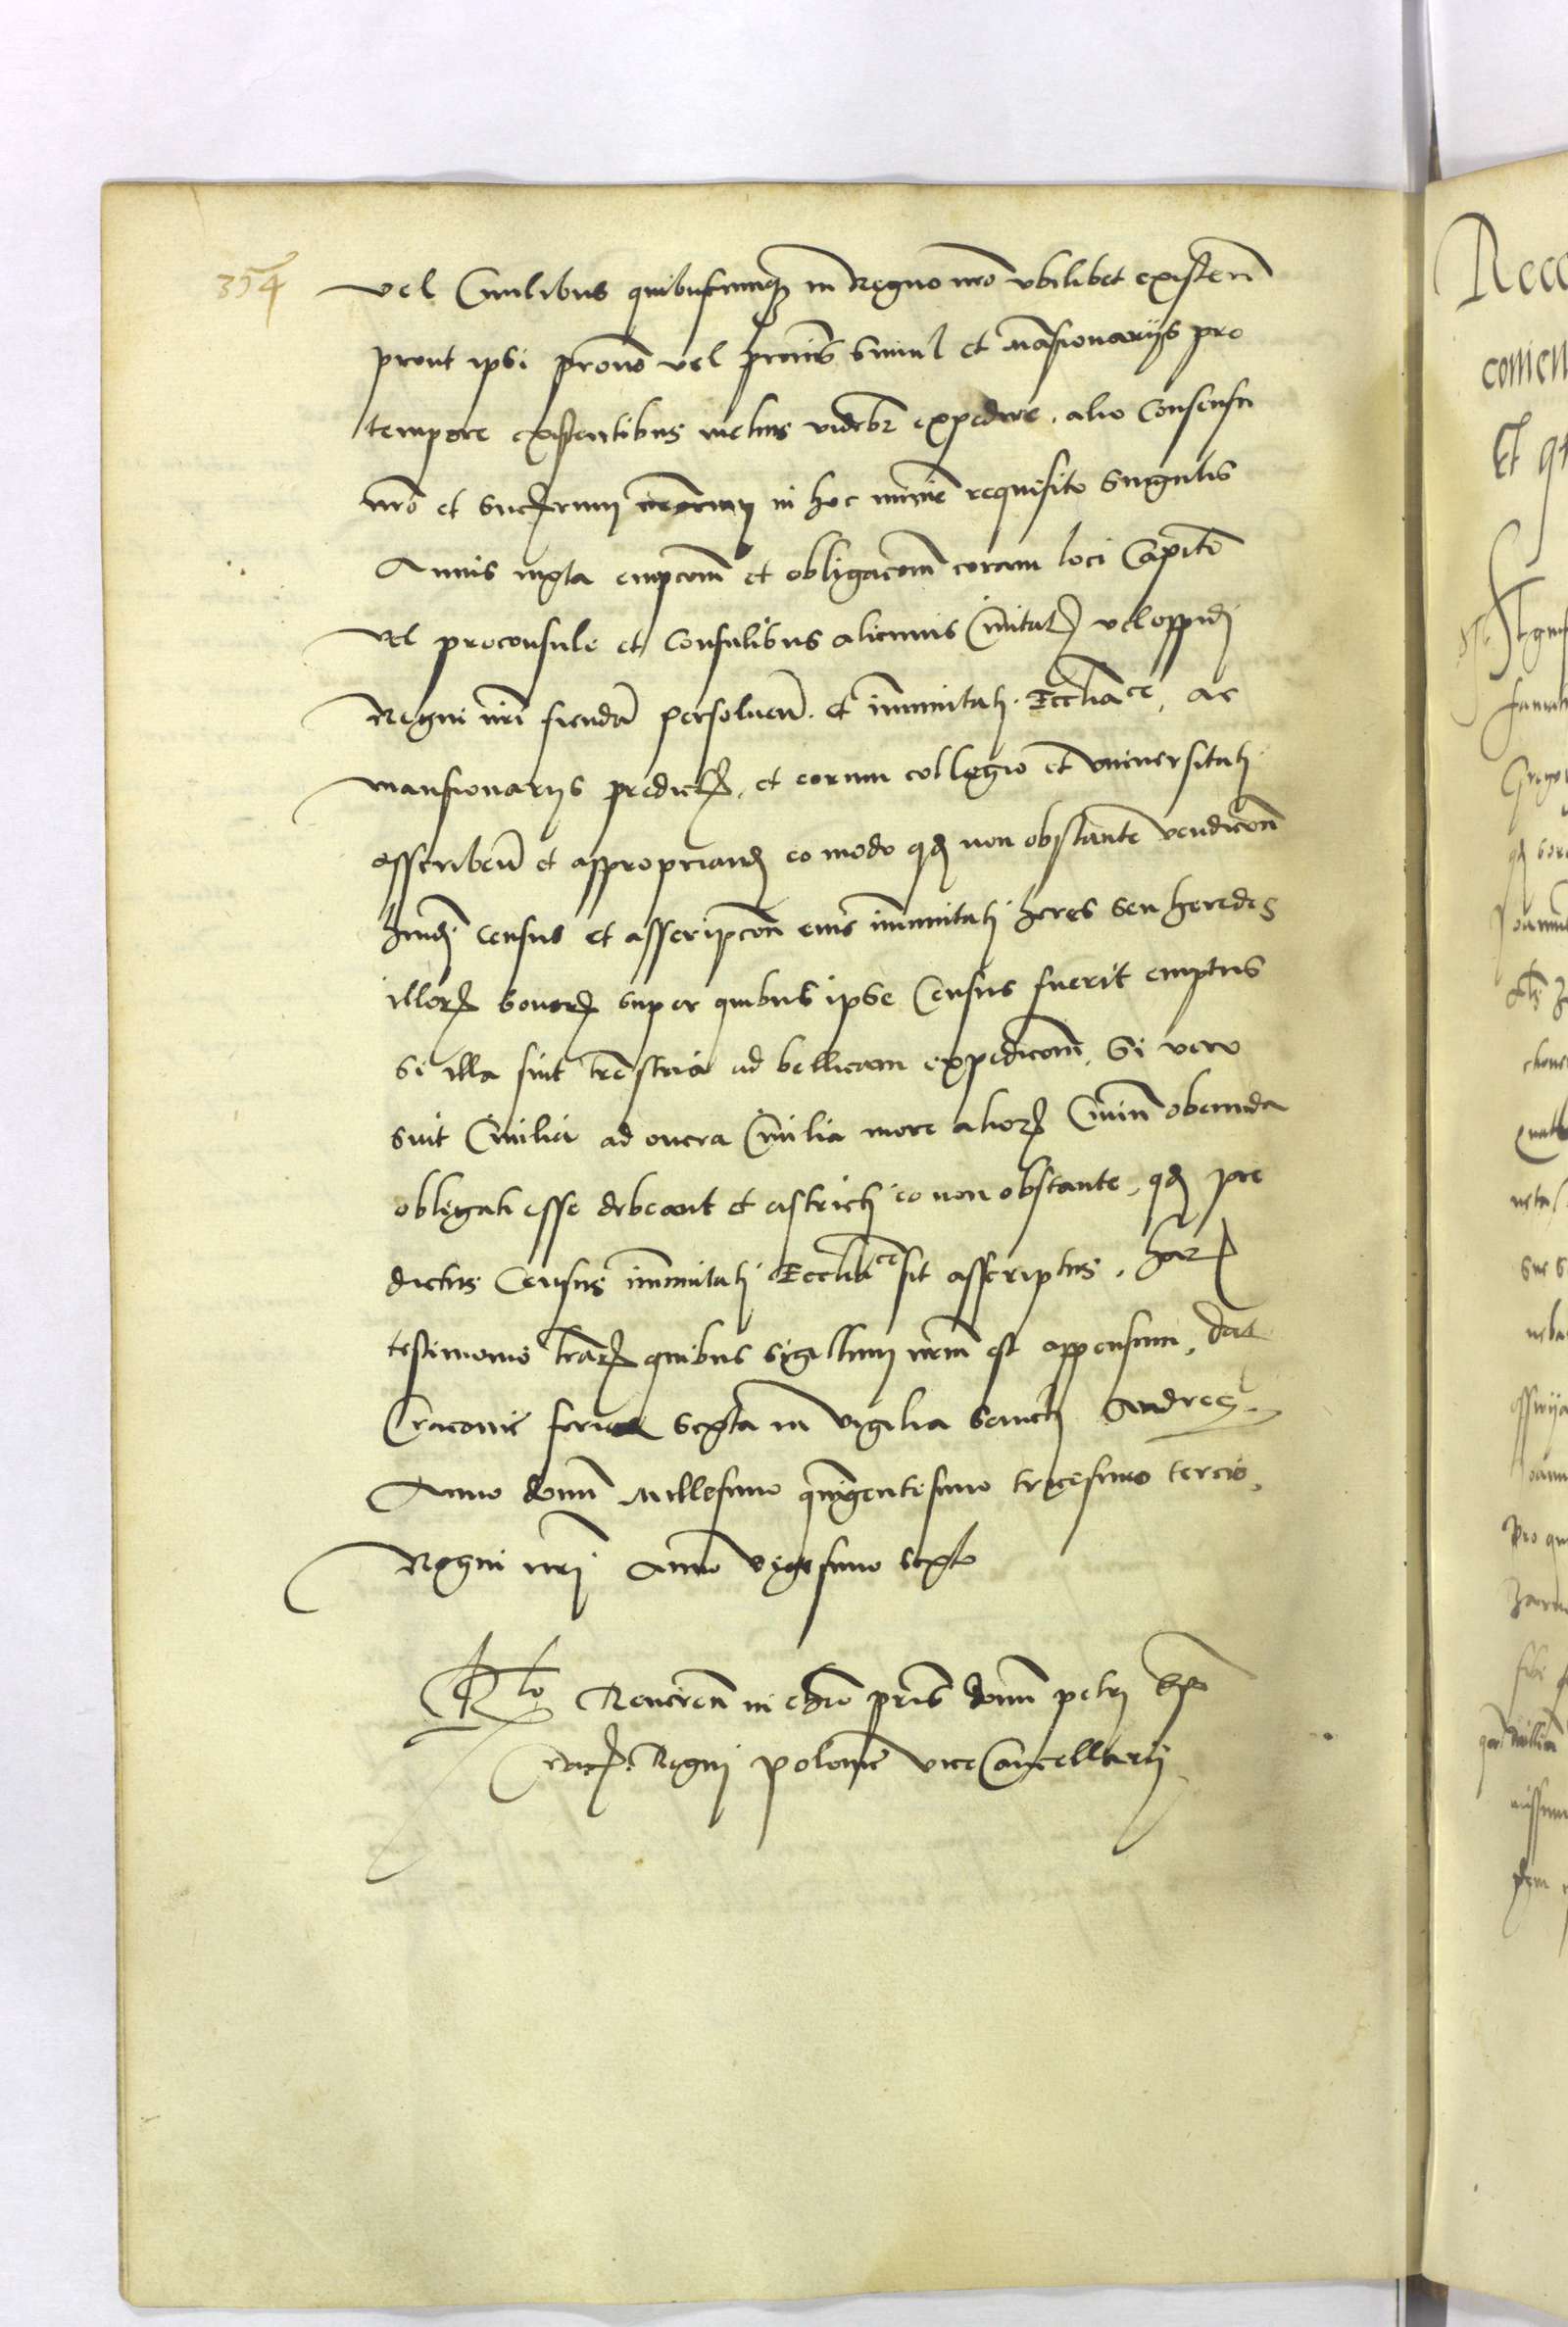 354
vel Civilibus quibuscumqȝ in Regno nr̄o vbilibet existen̄
prout ipsi p̄rono vel simul et Mansionarijs pro
tempore existentibus melius videbr̄ expedire. alio Consensu
nr̄o et Successorum nr̄orum in hoc minime requisito singulis
Annis iuxta empcōnem et obligacōnem coram loci Capitn̄
vel proconsule et Consulibus alicuius Civitatꝭ vel oppidi
Regni nr̄i fiendā persoluen̄. et immunitati Eccl̄iasticē, ac
mansionarijs predictis, et eorum collegio et vniuersitati
asscriben̄ et appropriand̄ eo modo qđ non obstante vendicōne
hmōi Census et asscripcōne eius immunitati heres seu heredes
illorꝝ bonorꝝ super quibus ipse Census fuerit emptus
si illa sint terrestria ad bellicam expedicōnem, Si vero
sint Civilia ad onera Civilia more aliorꝝ Civium obeunda
obligati esse debeant et astricti eo non obstante, qđ pre
dictus Census immunitati Eccl̄iasticē sit asscriptus. harꝝ
testimonio lr̄arꝝ quibus sigillum nr̄um est appensum, dat
Cracovie feria sexta in vigilia sancti Andreę
Anno domini Millesimo quingentesimo tricesimo tercio,
Regni nr̄i Anno vigesimo septo
Rlo Reueren̄ in chr̄o pr̄is domini petri Ep̄i
Cracꝭ Regni polonie viceCancellarij